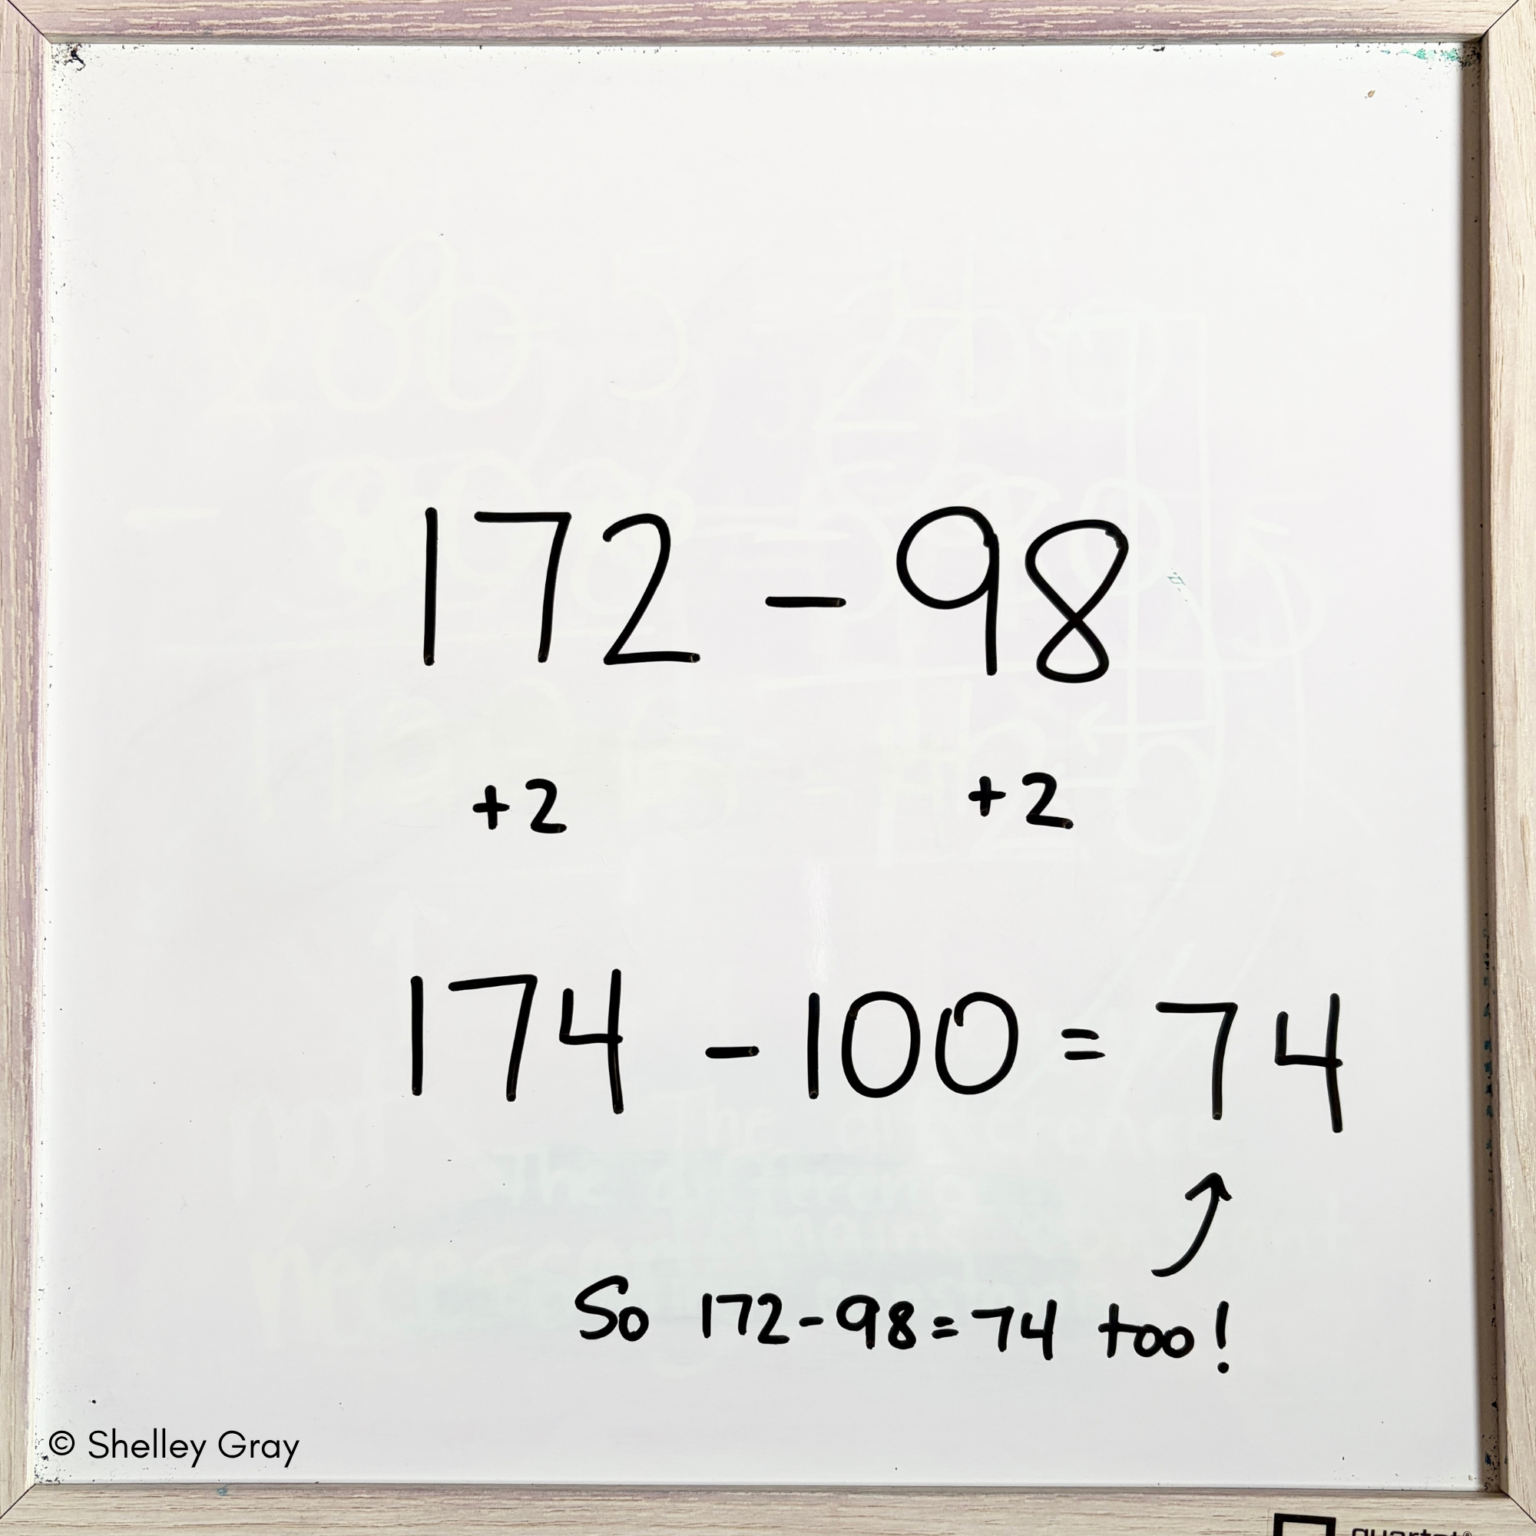 172 - 98
+2 +2
174 - 100 = 74
So 172 - 98 = 74 too!
© Shelley Gray